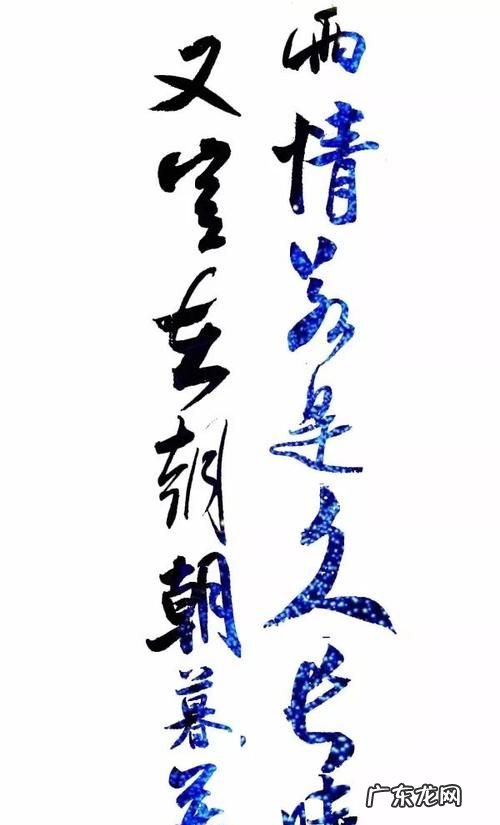 两情若是久长時
又岂在朝朝暮
广东龙网